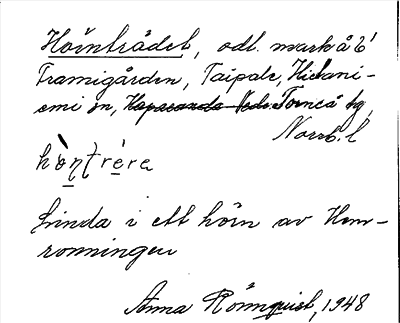 Hörnträdet, odl. mark å 6¹
Framigården, Taipale, Hietani-
emi sn, Haparanda Nedr. Torneå tg,
Norrb. l
hö̀ṇtrère
Linda i ett hörn av Hem-
ronningen
Anna Rönnquist, 1948